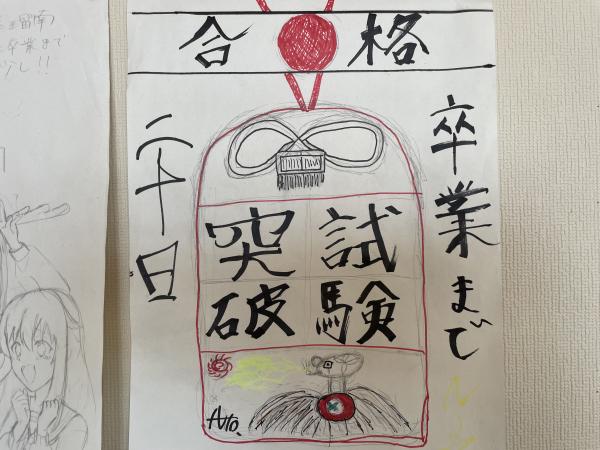 合格
卒業まで
試験
突破
二十日
Ato.
卒業まで